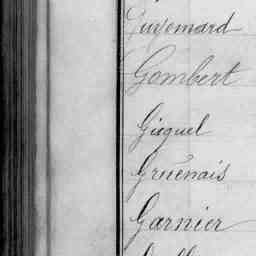 Guyomard
Gombert
Gicquel
Gruénais
Garnier